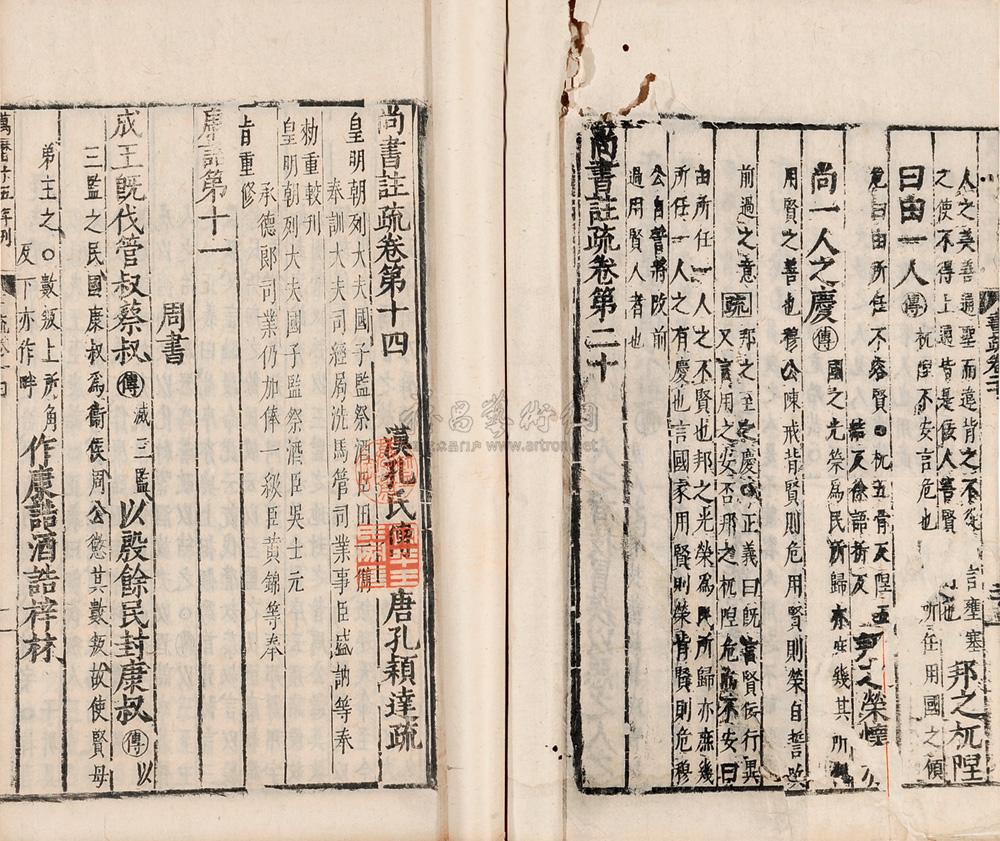 人之美善通聖而違背之不從 言壅塞
之使不得上通皆是佞人害賢 也
邦之杌隉
曰由一人 傳 杌隉不安言危也
所任用國之傾
危曰由所任不容賢 ○ 杌五骨反隉五
結反徐語折反
榮懷
尚一人之慶 傳 國之光榮爲民所歸亦庶幾其所
用賢之善也穆公陳戒背賢則危用賢則榮自誓
前過之意 疏 邦之至之慶○正義曰既言賢佞行異
又言用之安否邦之杌隉危而不安曰
由所任一人之不賢也邦之光榮爲民所歸亦庶幾
所任一人之有慶也言國家用賢則榮背賢則危穆
公自誓將改前
過用賢人者也
尚書註疏卷第二十
書疏卷二十
尚書註疏卷第十四
漢孔氏傳 唐孔穎達疏
皇明朝列大夫國子監祭酒臣田一儁
奉訓大夫司經局洗馬管司業事臣盛訥等奉
勑重較刊
皇明朝列大夫國子監祭酒臣吳士元
承德郎司業仍加俸一級臣黃錦等奉
旨重修
康誥第十一
周書
成王既伐管叔蔡叔 傳 滅三監 以殷餘民封康叔 傳 以
三監之民國康叔爲衞侯周公懲其數叛故使賢母
弟主之○數叛上所角
反下亦作畔
作康誥酒誥梓材
萬曆十五年刊
www.artron.net